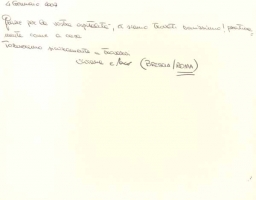 4 Gennaio 2009
Grazie per la vostra ospitalità, ci siamo trovati benissimo! pratica-
mente come a casa
Torneremo sicuramente a trovarvi
Viviana e (BRESCIA/ROMA)